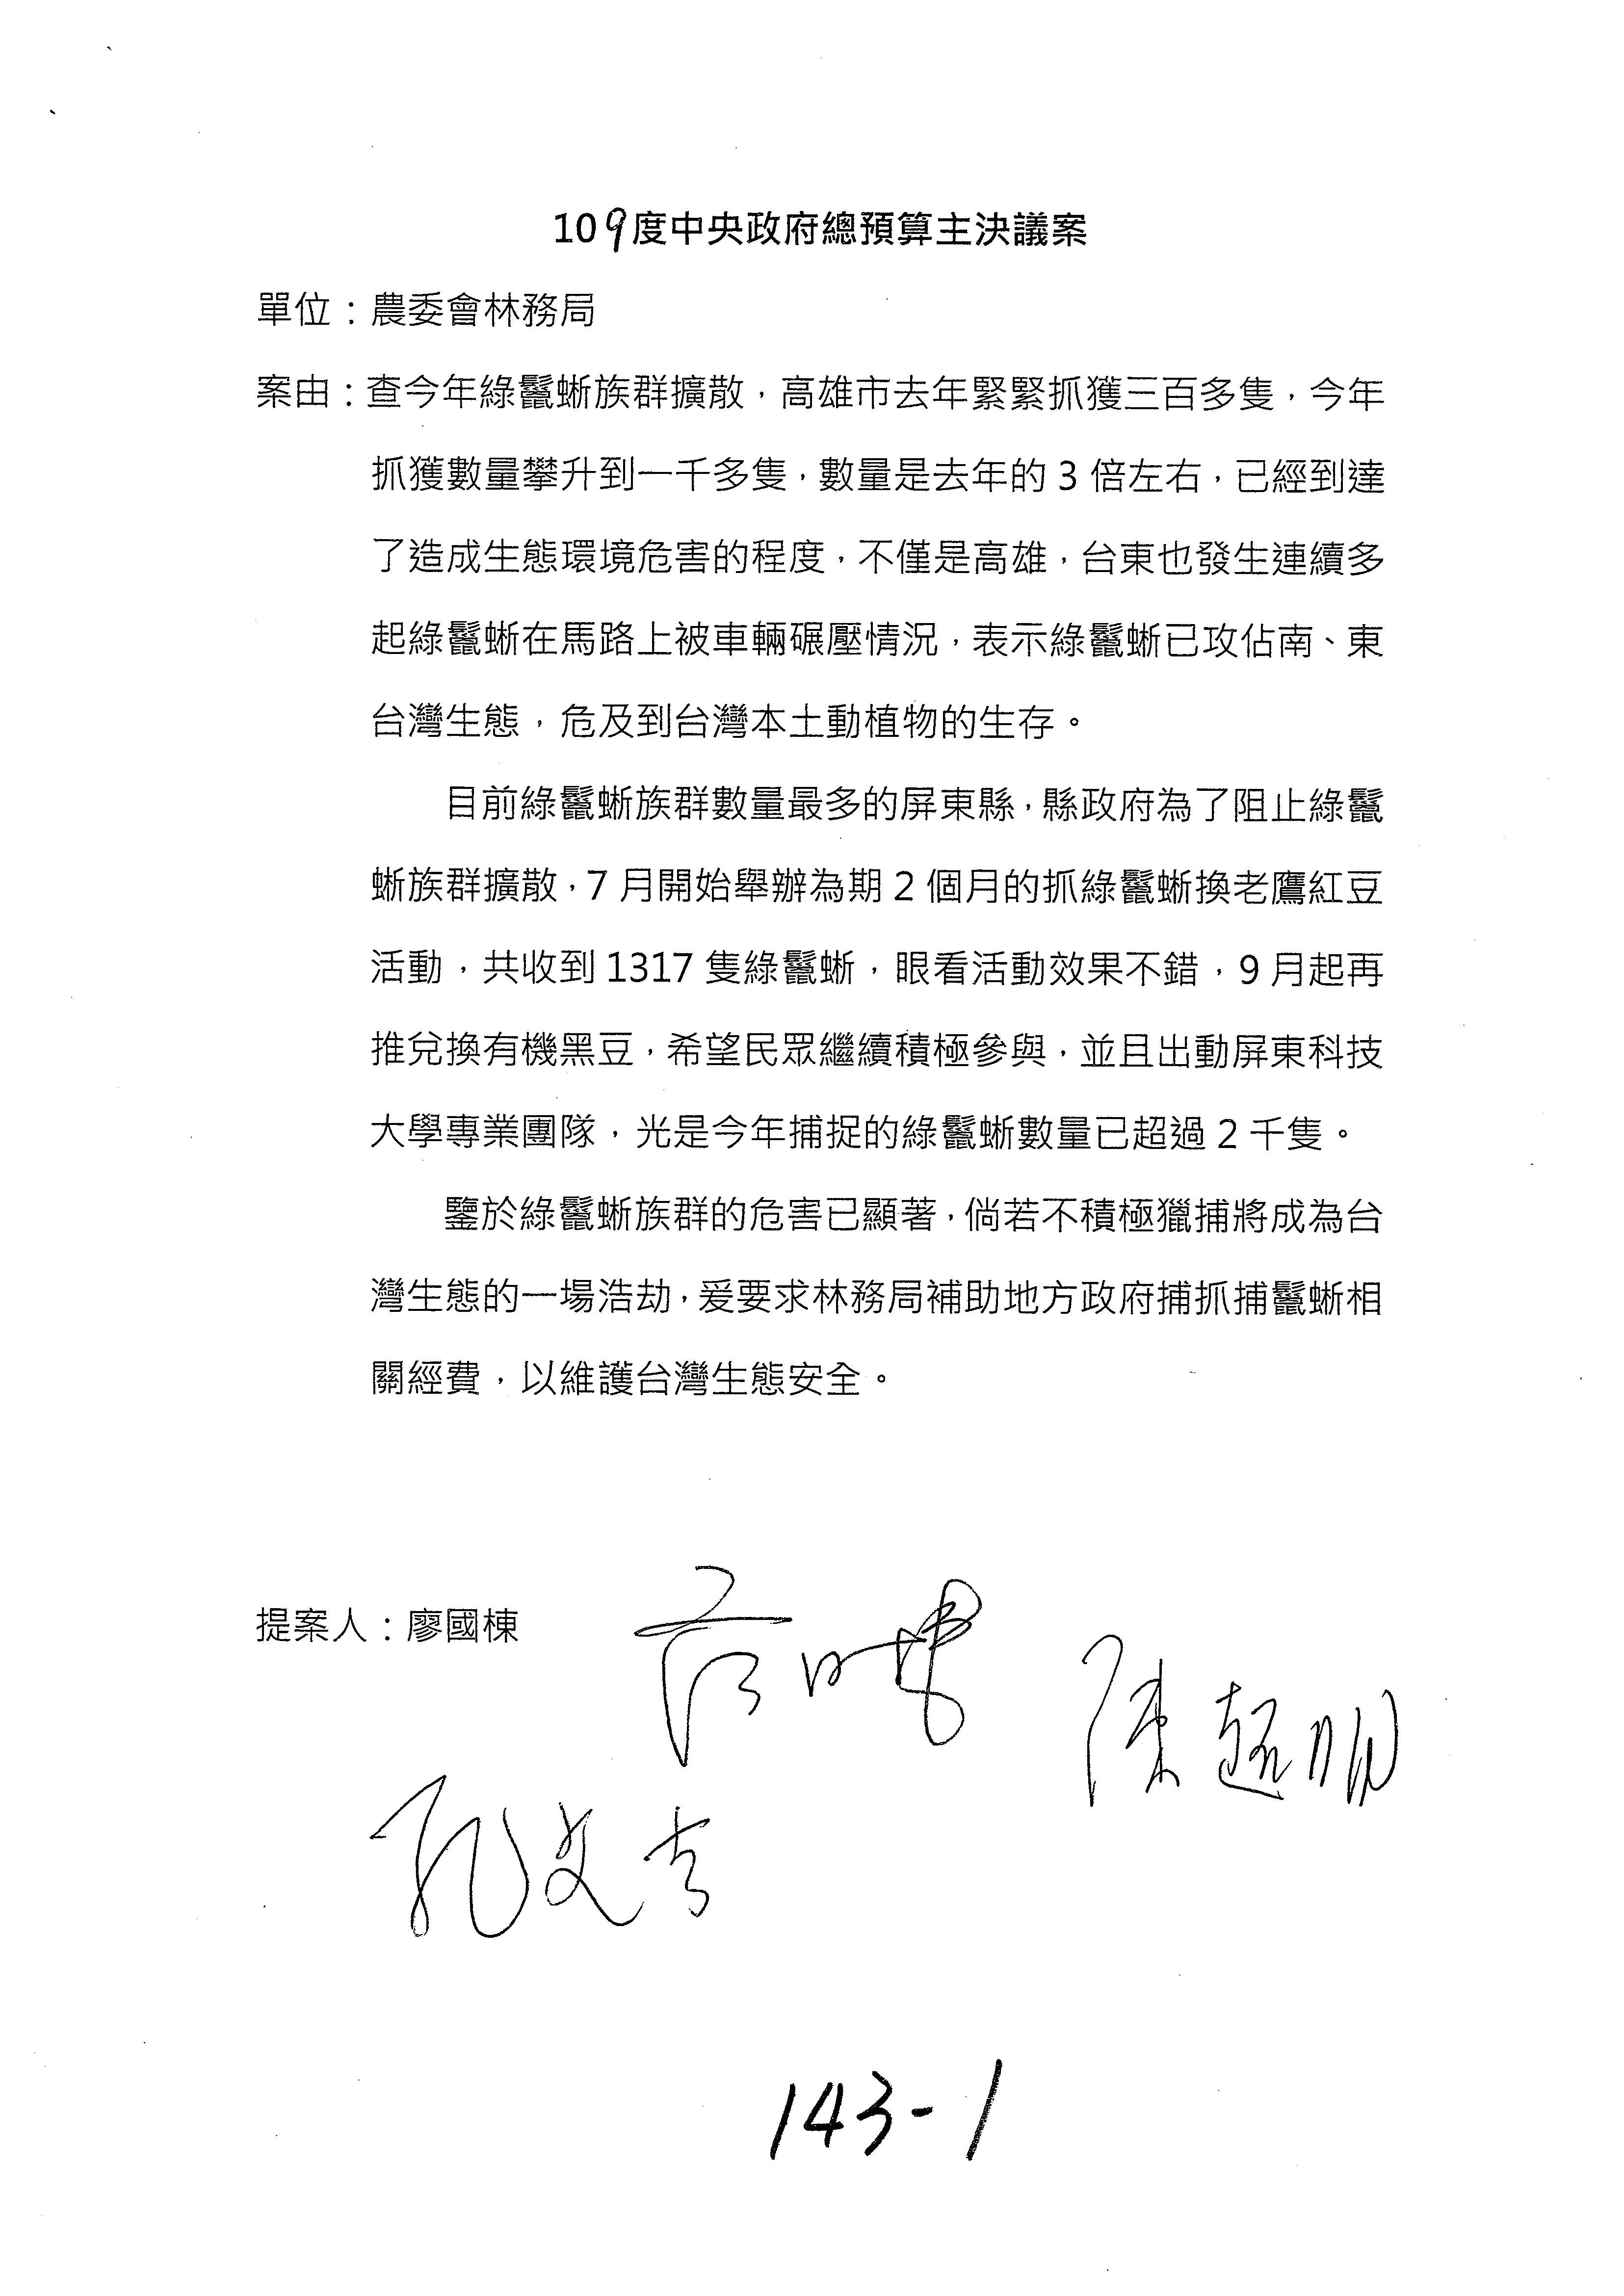 109度中央政府總預算主決議案
單位：農委會林務局
案由：查今年綠鬣蜥族群擴散，高雄市去年緊緊抓獲三百多隻，今年
抓獲數量攀升到一千多隻，數量是去年的 3 倍左右，已經到達
了造成生態環境危害的程度，不僅是高雄，台東也發生連續多
起綠鬣蜥在馬路上被車輛碾壓情況，表示綠鬣蜥已攻佔南、東
台灣生態，危及到台灣本土動植物的生存。
目前綠鬣蜥族群數量最多的屏東縣，縣政府為了阻止綠鬣
蜥族群擴散，7 月開始舉辦為期 2 個月的抓綠鬣蜥換老鷹紅豆
活動，共收到 1317 隻綠鬣蜥，眼看活動效果不錯，9 月起再
推兌換有機黑豆，希望民眾繼續積極參與，並且出動屏東科技
大學專業團隊，光是今年捕捉的綠鬣蜥數量已超過 2 千隻。
鑒於綠鬣蜥族群的危害已顯著，倘若不積極獵捕將成為台
灣生態的一場浩劫，爰要求林務局補助地方政府捕抓捕鬣蜥相
關經費，以維護台灣生態安全。
提案人：廖國棟
陳超明
孔文吉
143-1